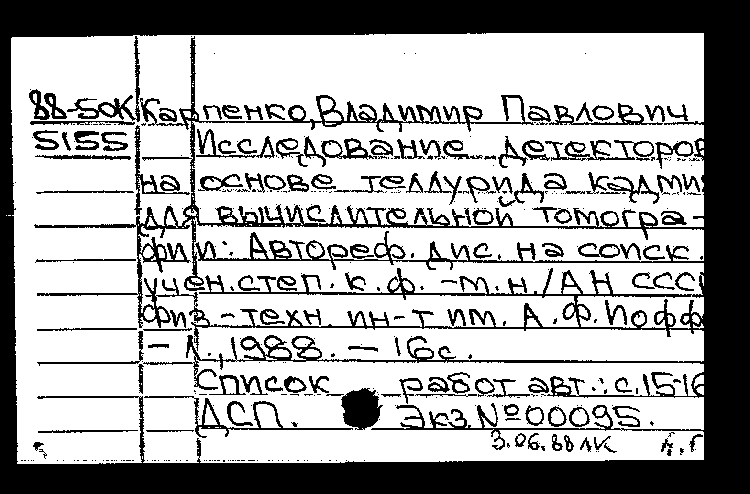 88-50К Карпенко, Владимир Павлович
5155 Исследование детекторов
на основе теллурида кадмия
для вычислительной томогра-
фии: Автореф. дис. на соиск.
учен. степ. к. ф. -м. н. / АН СССР
физ-техн. ин-т им. А. Ф. Иоффе
- Л., 1988. - 16с.
Список работ авт.: с.15-16
ДСП. Экз. № 00095.
3.06.88